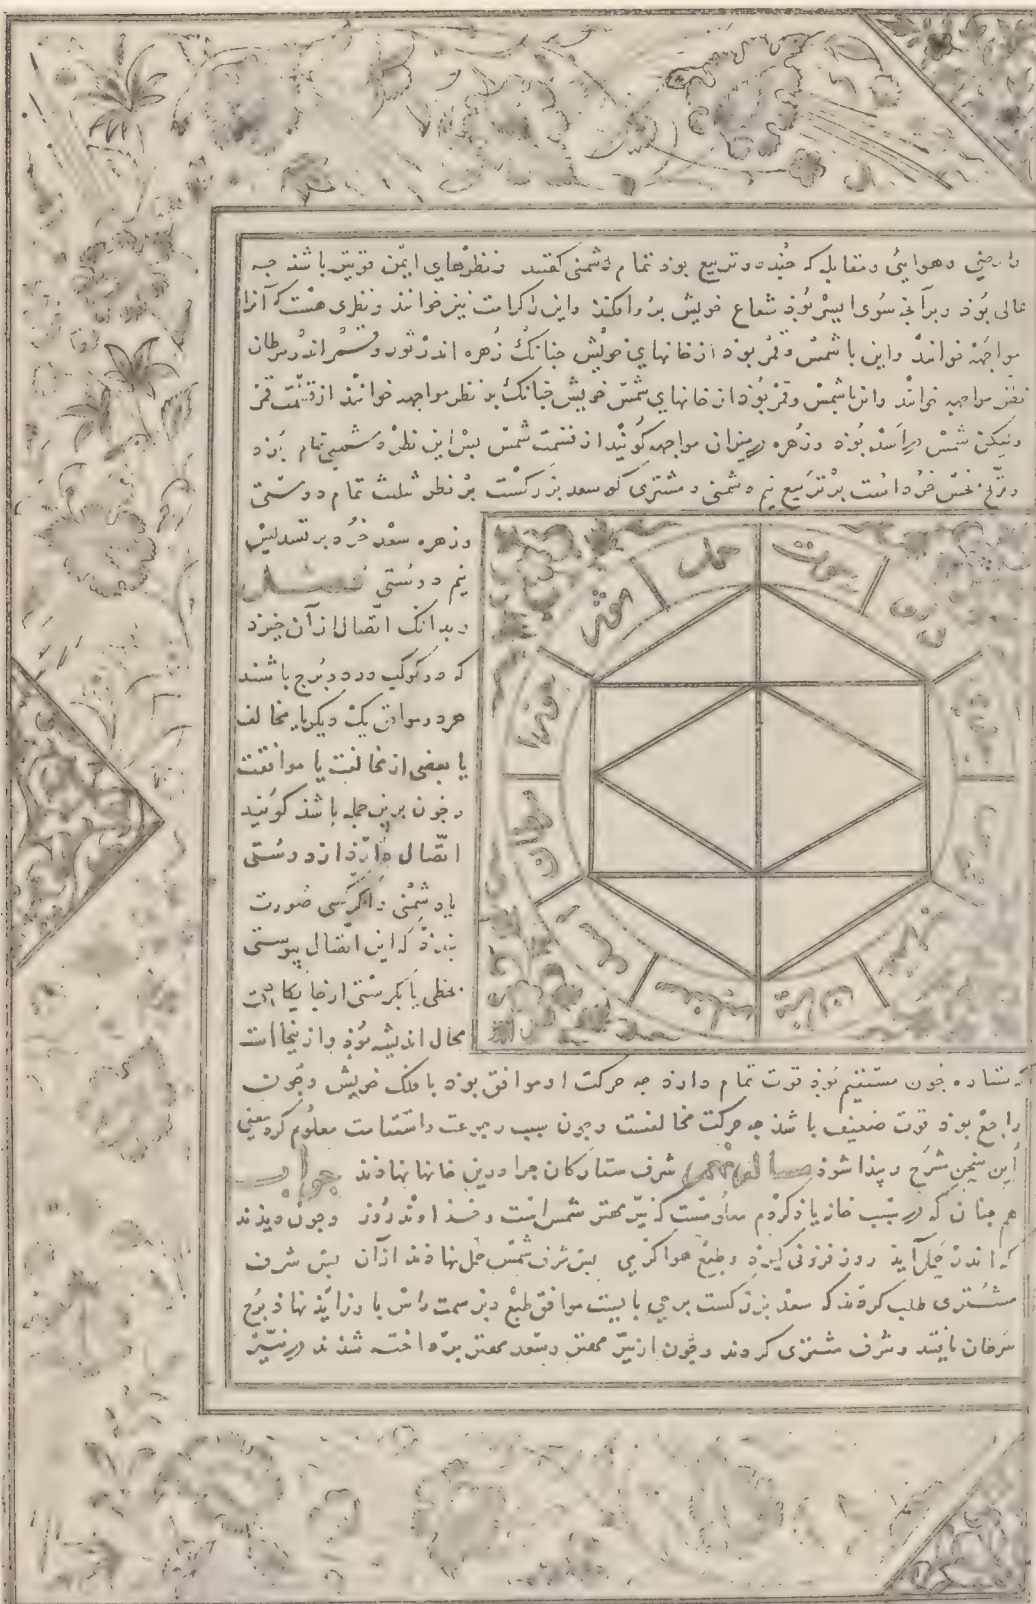 وارضی وهوایی ومقابله که ضد دو تربیع بوذ تمام دشمنی کفتند ونظرهای ایمن قویتر باشذ جه
عالی بُوذ وبرآنجه سوی ایسر بُوذ شعاع خویش بر وافکنذ واین را کرامت نیز خوانند ونظری هست که آنرا
مواجهه خوانند واین با شمس وقمر بوذ از خانهای خویش جنانک زهره اندر ثور وقمر اندر سرطان
نظر مواجهه خوانند واز با شمس وقمر بُوذ از خانهای شمس خویش جنانک بر نظر مواجهه خوانند از قسمت قمر
ولیکن شمس در اسد بُوذ وزهره در میزان مواجهه کویند از قسمت شمس بس این نظر دشمنی تمام بوذ
ومریخ نحس خُرد است بر تربیع نیم دشمنی ومشتری که سعد بزرکست بر نظر تثلیث تمام دوستی
وزهره سعد خُرد بر تسدیس
نیم دوستی فصل
وبدانک اتّصال از آن جیزد
که دو کوکب در دو برج باشند
هر دو موافق یک دیکر یا مخالف
یا بعضی از مخالفت یا موافقت
وجون برین جمله باشذ کویند
اتّصال دارذ از دوستی
یا دشمنی واکر کسی صورت
بندذ که این اتصال پیوستی
بخطی یا بکرستی از جایکاهست
محال اندیشه بُوذ واز ینجا است
حمل
حوت
ثور
جوزا
سرطان
اسد
سنبله
میزان
عقرب
که ستاره جون مستقیم بُوذ قوت تمام دارذ جه حرکت او موافق بوذ با فلک خویش وجون
راجع بوذ قوت ضعیف باشذ جه حرکت مخالفست وجون سبب رجوعت واستقامت معلوم کرد معنی
این سخن شرح وپیذا شوذ شرف ستارکان جرا درین خانها نهاذند جواب
هم جنان که در سبب خانه یاذ کردم معلومست که نیّر مهتر شمس است وخذاوند روز وجون دیذند
که اندر حمل آیذ روز فزونی کیرذ وطبع هوا کرمی بس شرف شمس حمل نهاذند از آن بس شرف
مشتری طلب کردند که سعد بزرکست برجی بایست موافق طبع ونیز سمت راس با وزایذ نهاذ برج
سرطان یافتند وشرف مشتری کردند وجون از نیّر مهتر وسعد مهتر برداخته شذند در نیّر